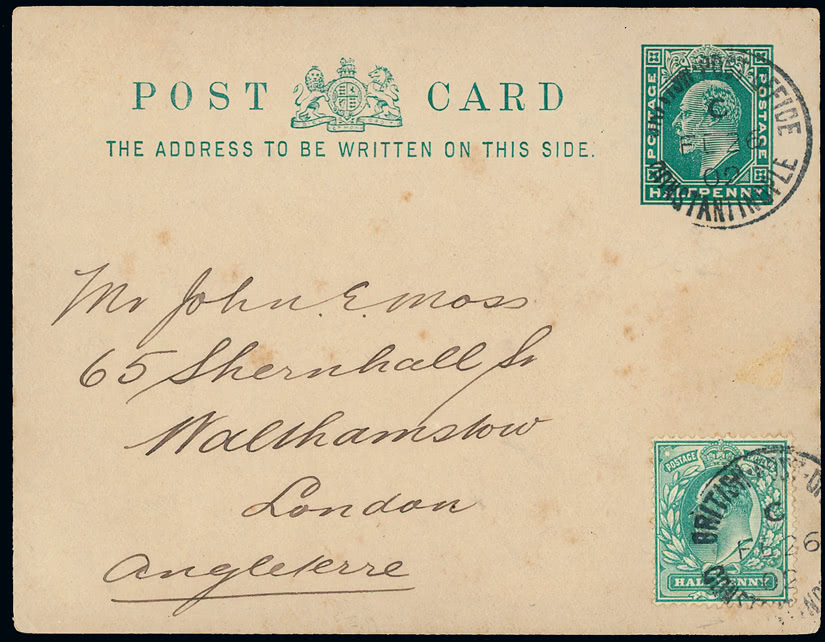 POST CARD
THE ADDRESS TO BE WRITTEN ON THIS SIDE.
POSTAGE POSTAGE
HALFPENNY
BRITISH POST OFFICE
C
FE 26
02
CONSTANTINOPLE
Mr John. E. Moss
65 Shernhall St
Walthamstow
London
Angleterre
POSTAGE
HALF PENNY
BRITISH POST O
C
FE 26
02